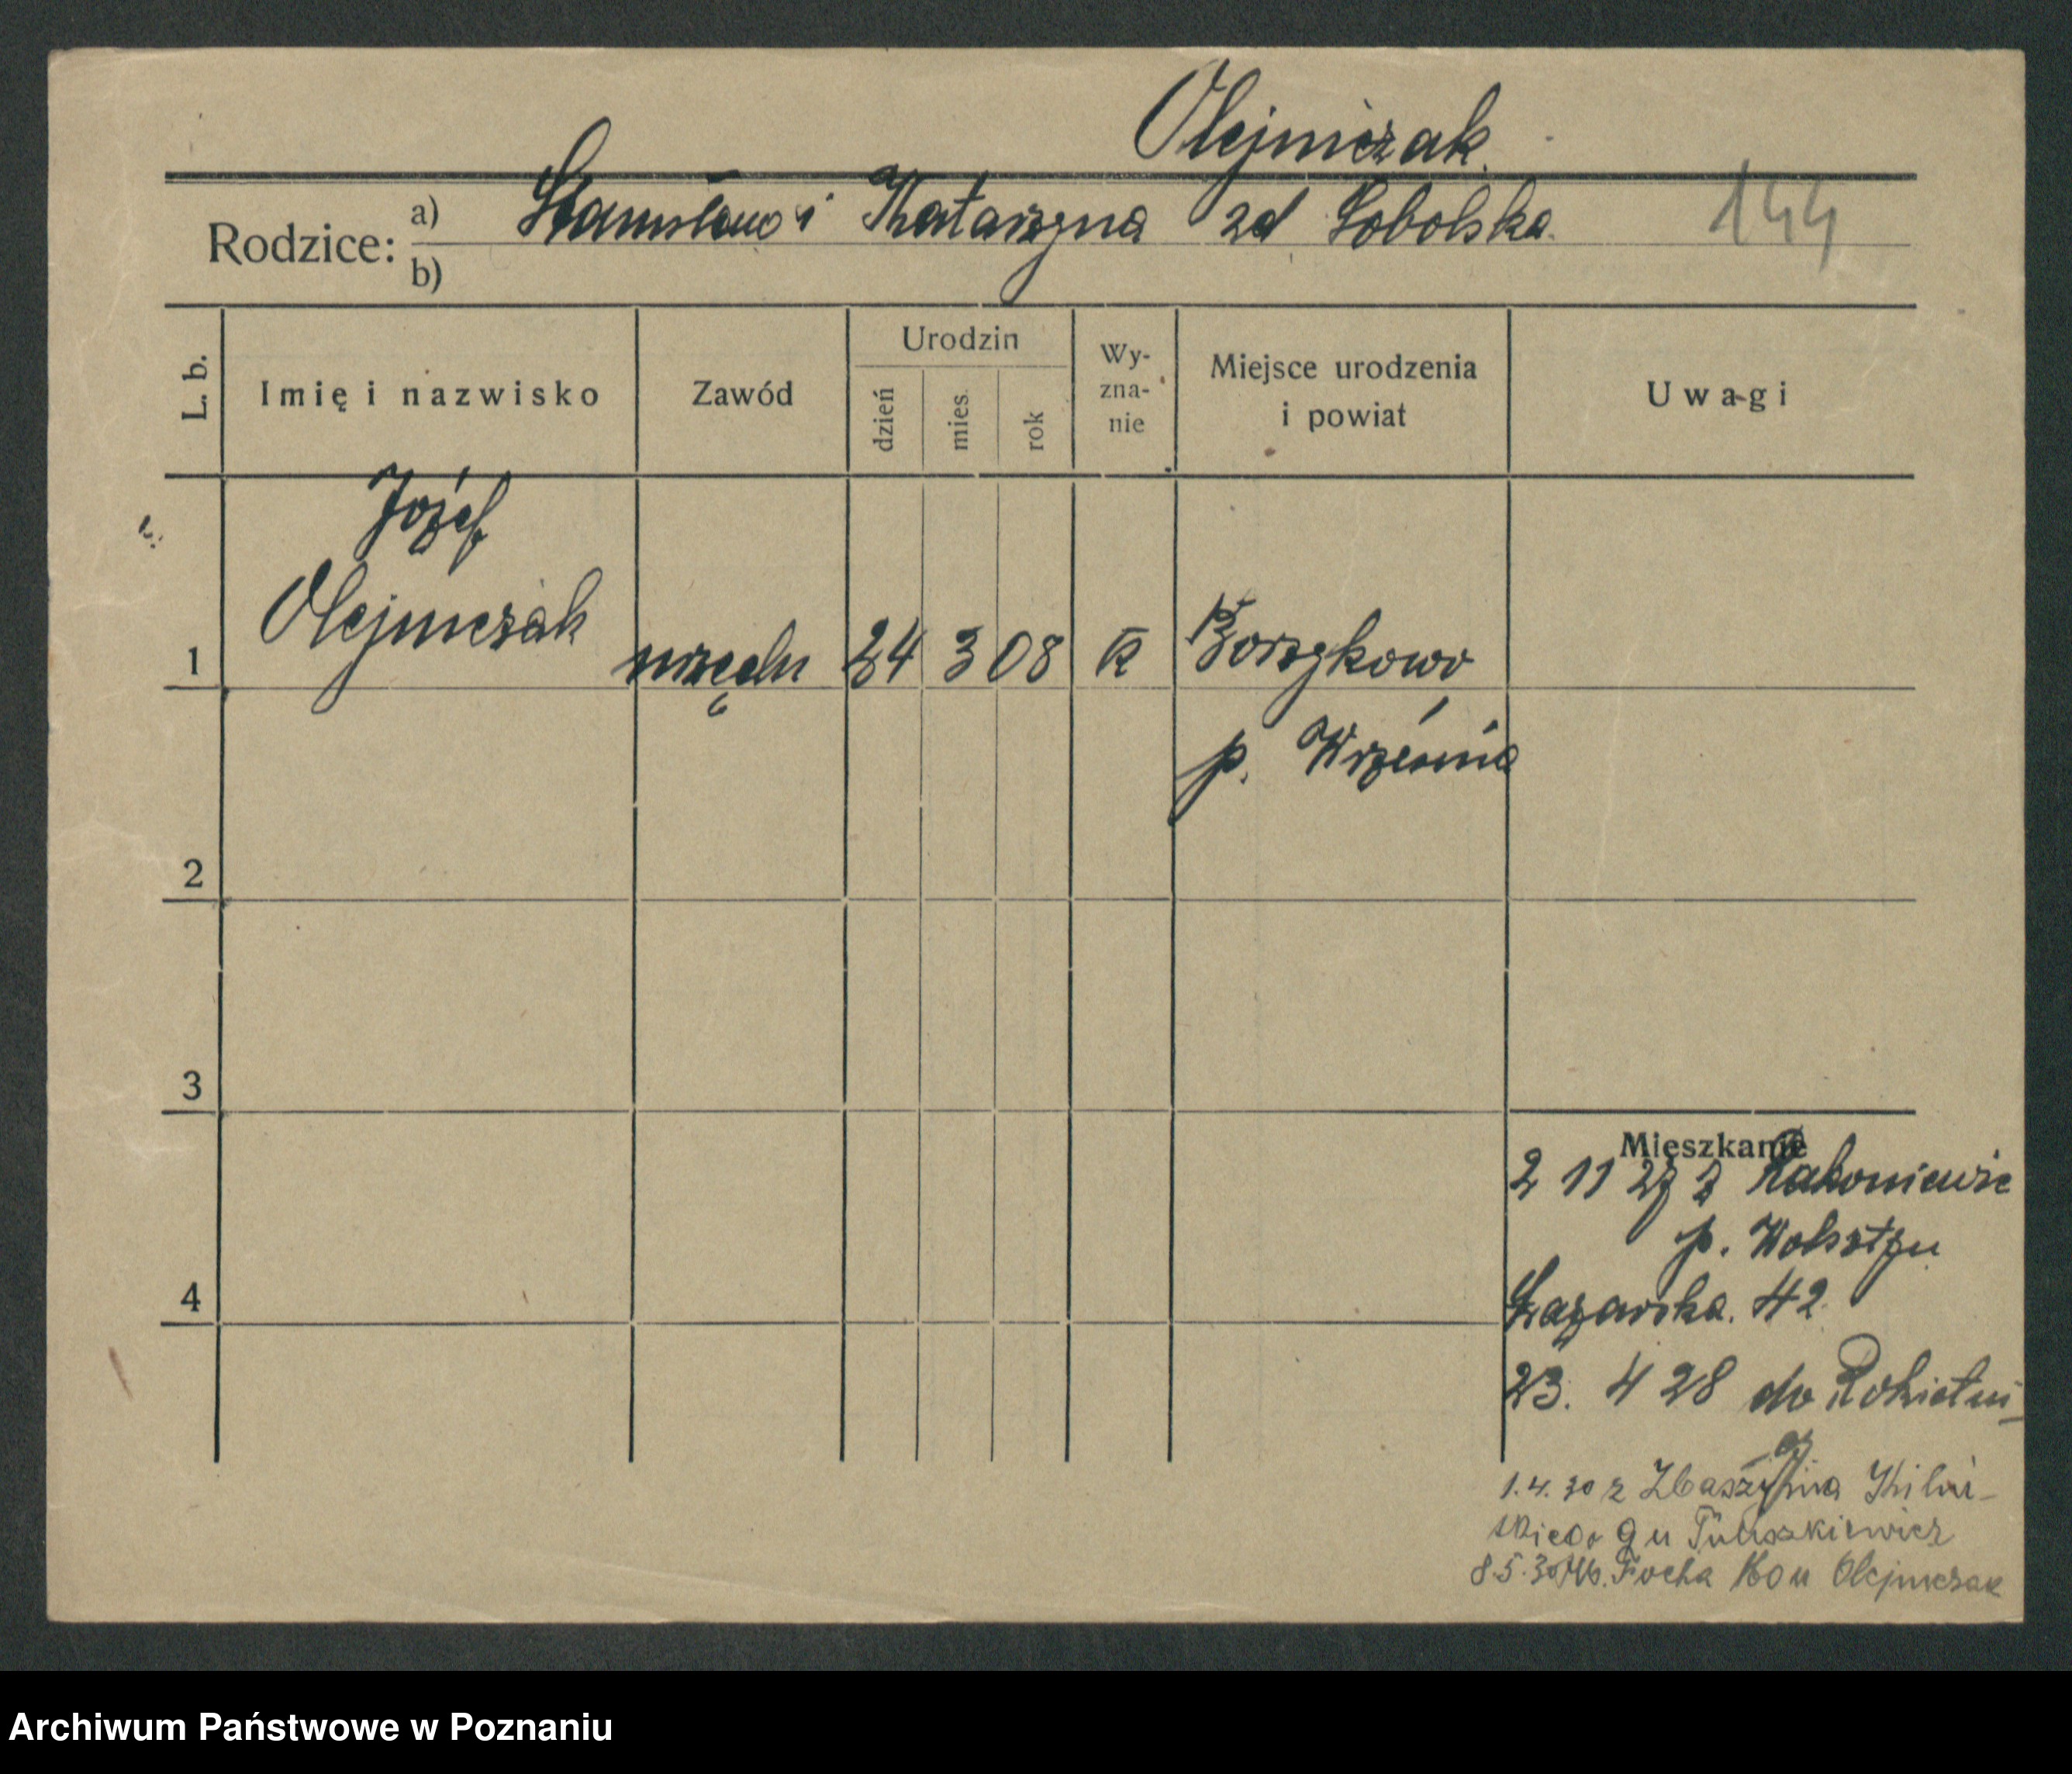 Olejniczak
Rodzice: a) Stanisław i Katarzyna zd Sobolska
144
b)
L. b.
Imię i nazwisko
Zawód
Urodzin
dzień
mies.
rok
Wy-
zna-
nie
Miejsce urodzenia
i powiat
Uwagi
Józef
Olejniczak
1
urzędn
24 3 08
k
Borzykowo
p. Września
2
3
Mieszkanie
2 11 27 z Rakoniewic
p. Wolsztyn
4
Łazarska. 42
23. 4 28 do Rokietni_
cy
1.4.30 z Zbąszynia Kiliń-
skiego 9 u
8.5.30 M. Focha 160 u Olejniczak
Archiwum Państwowe w Poznaniu